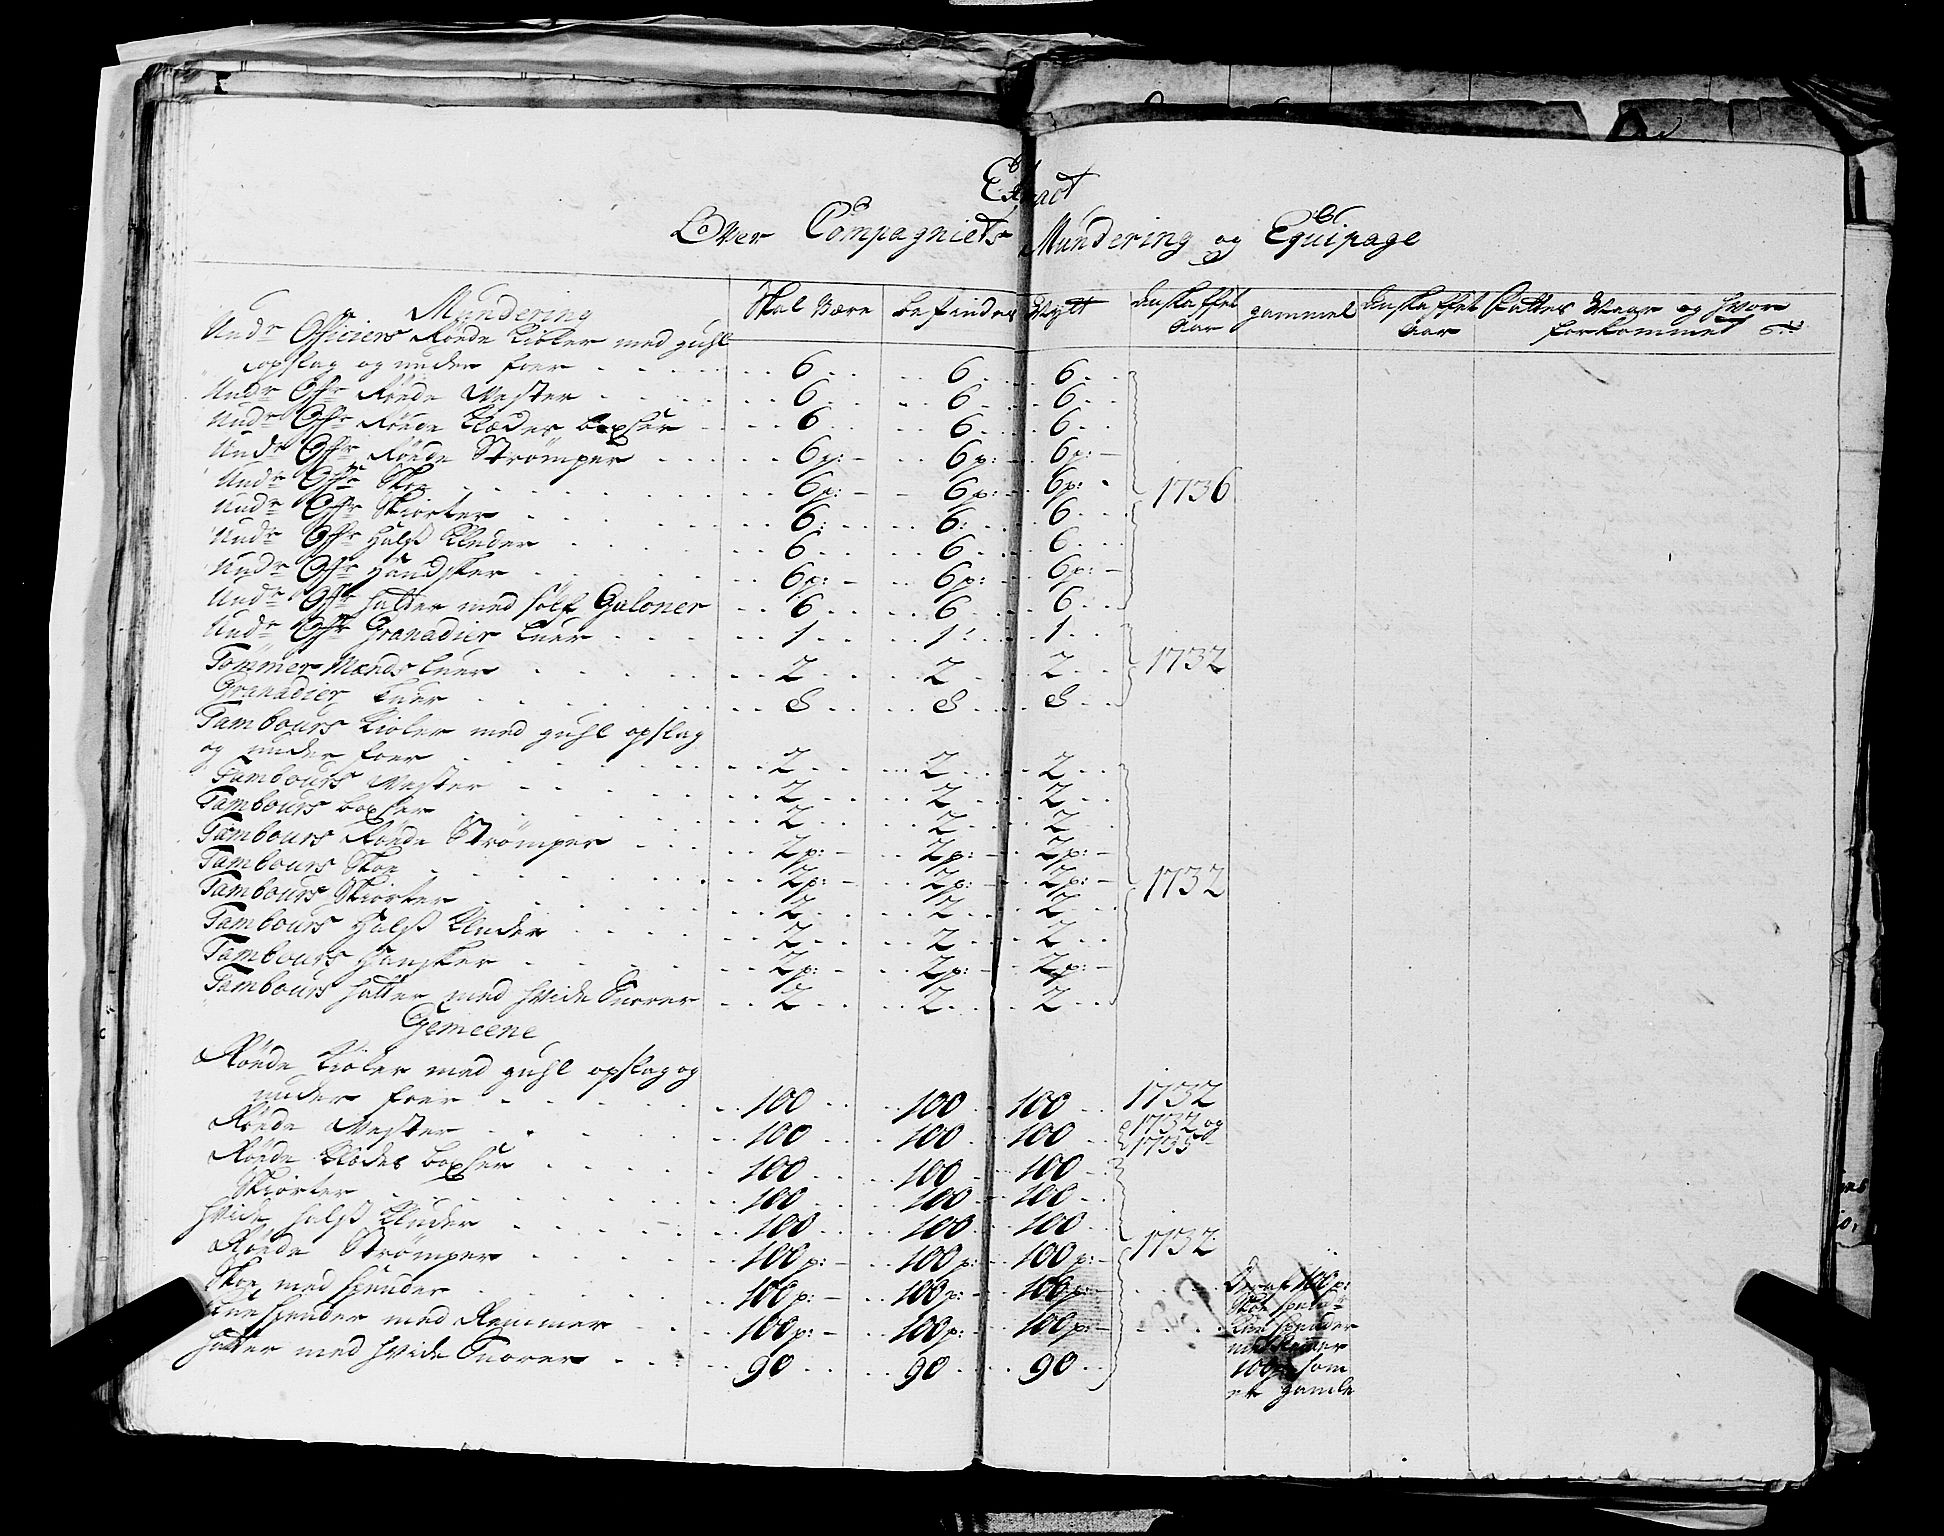 Extract
Over Compagniets Mundering og Equipage
Mundering
Skal Være
befindes
Nytt
anskaffet
Aar
gammel
anskaffet
Aar
fattes Naar og hvor
forkommet
Undr Officiers Röde Kioler med guhl
opslag og under foer 6 6 6
Undr Offr Röde Vester 6 6 6
Undr Offr Röde Klæder boxser 6 6 6
Undr Offr Röde Strömper 6p: 6p: 6p:
Undr Offr Skoe 6p: 6p: 6p: 1736
Undr Offr Skiorter 6 6 6
Undr Offr Halss Kluder 6 6 6
Undr Offr Handsker 6p: 6p: 6p:
Undr Offr Hatter med sölf Galoner 6 6 6
Undr Offr Granadier luer 1 1 1
Tömmer Mænds luer 2 2 2 1732
Granadier luer 8 8 8
Tambours Kioler med guhl opslag
og under foer 2 2 2
Tambours Vester 2 2 2
Tambours boxser 2 2 2
Tambours Röde Strömper 2p: 2p: 2p:
Tambours Skoe 2p: 2p: 2p: 1732
Tambours Skiorter 2 2 2
Tambours Halss Kluder 2 2 2
Tambours Hansker 2p: 2p: 2p:
Tambours Hatter med hvide Snorer 2 2 2
Gemeene
Röde Kioler med guhl opslag og
under foer 100 100 100 1732
Röde Vester 100 100 100 1732 og
1735
Röde Klædes boxser 100 100 100
Skiorter 100 100 100
hvide halss Kluder 100 100 100
Röde Strömper 100p: 100p: 100p: 1732
Skoe med spender 100p: 100p: 100p: Deraf 100p:
Skoe spendr
Knee spender med Remmer 100p: 100p: 100p: Knee spender
med Remmer
Hatter med hvide Snorer 90 90 90 100p: som
er gamle